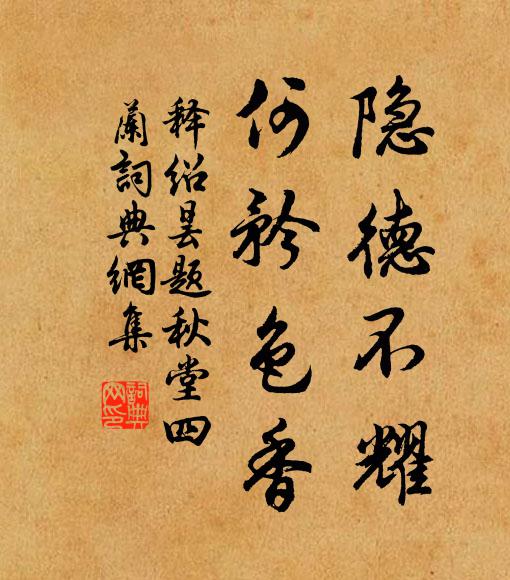 隐德不耀
何矜色香
释绍昙题秋堂四
兰詞典網集
詞典
网印